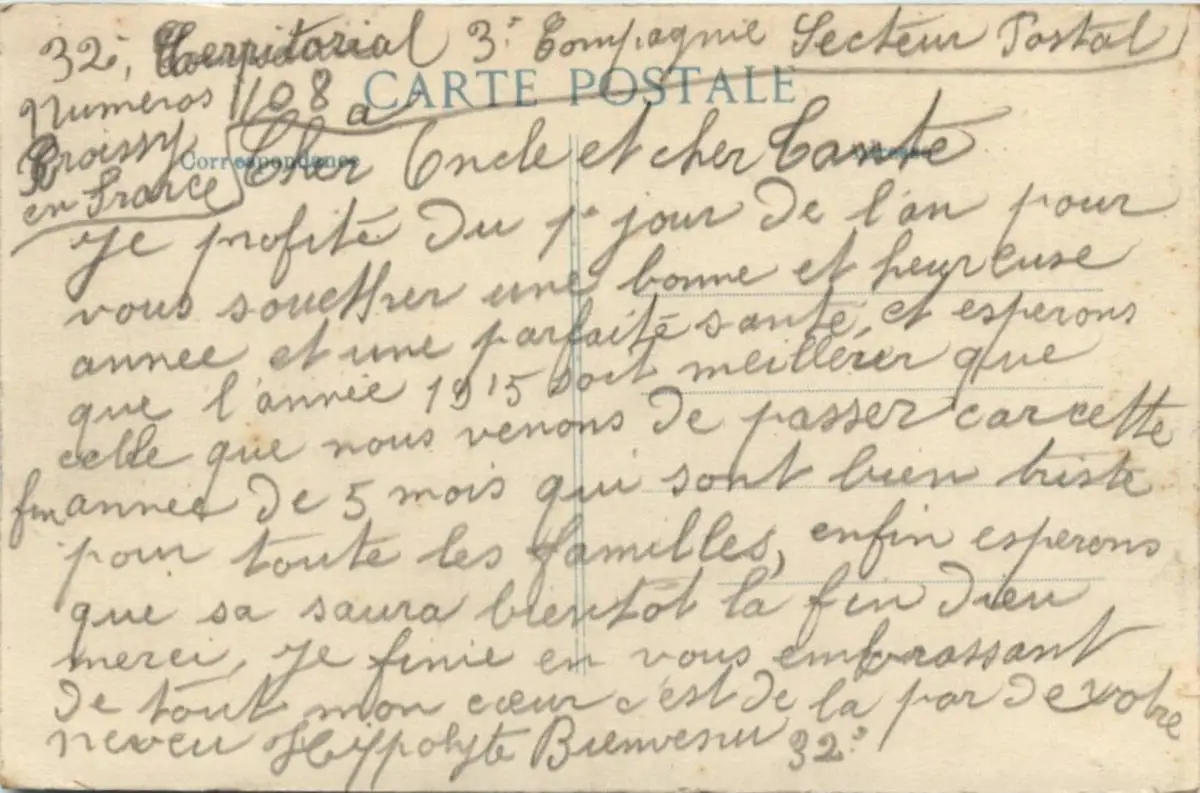 32e, Territorial 3e Compagnie Secteur Postal
CARTE POSTALE
Numeros 108 a
Proissy
en France
Correspondance
Cher Oncle et cher Tante
je profite du 1r jour de l'an pour
vous souether une bonne et heureuse
annee et une parfaite santé, et esperons
que l'année 1915 soit meillerer que
celle que nous venons de passer car cette
fin annee de 5 mois qui sont bien triste
pour toute les familles, enfin esperons
que sa saura bientôt la fin Dieu
merci, je finie en vous embrassant
de tout mon cœur c'est de la par de votre
neveu Hippolyte Bienvenu 32e